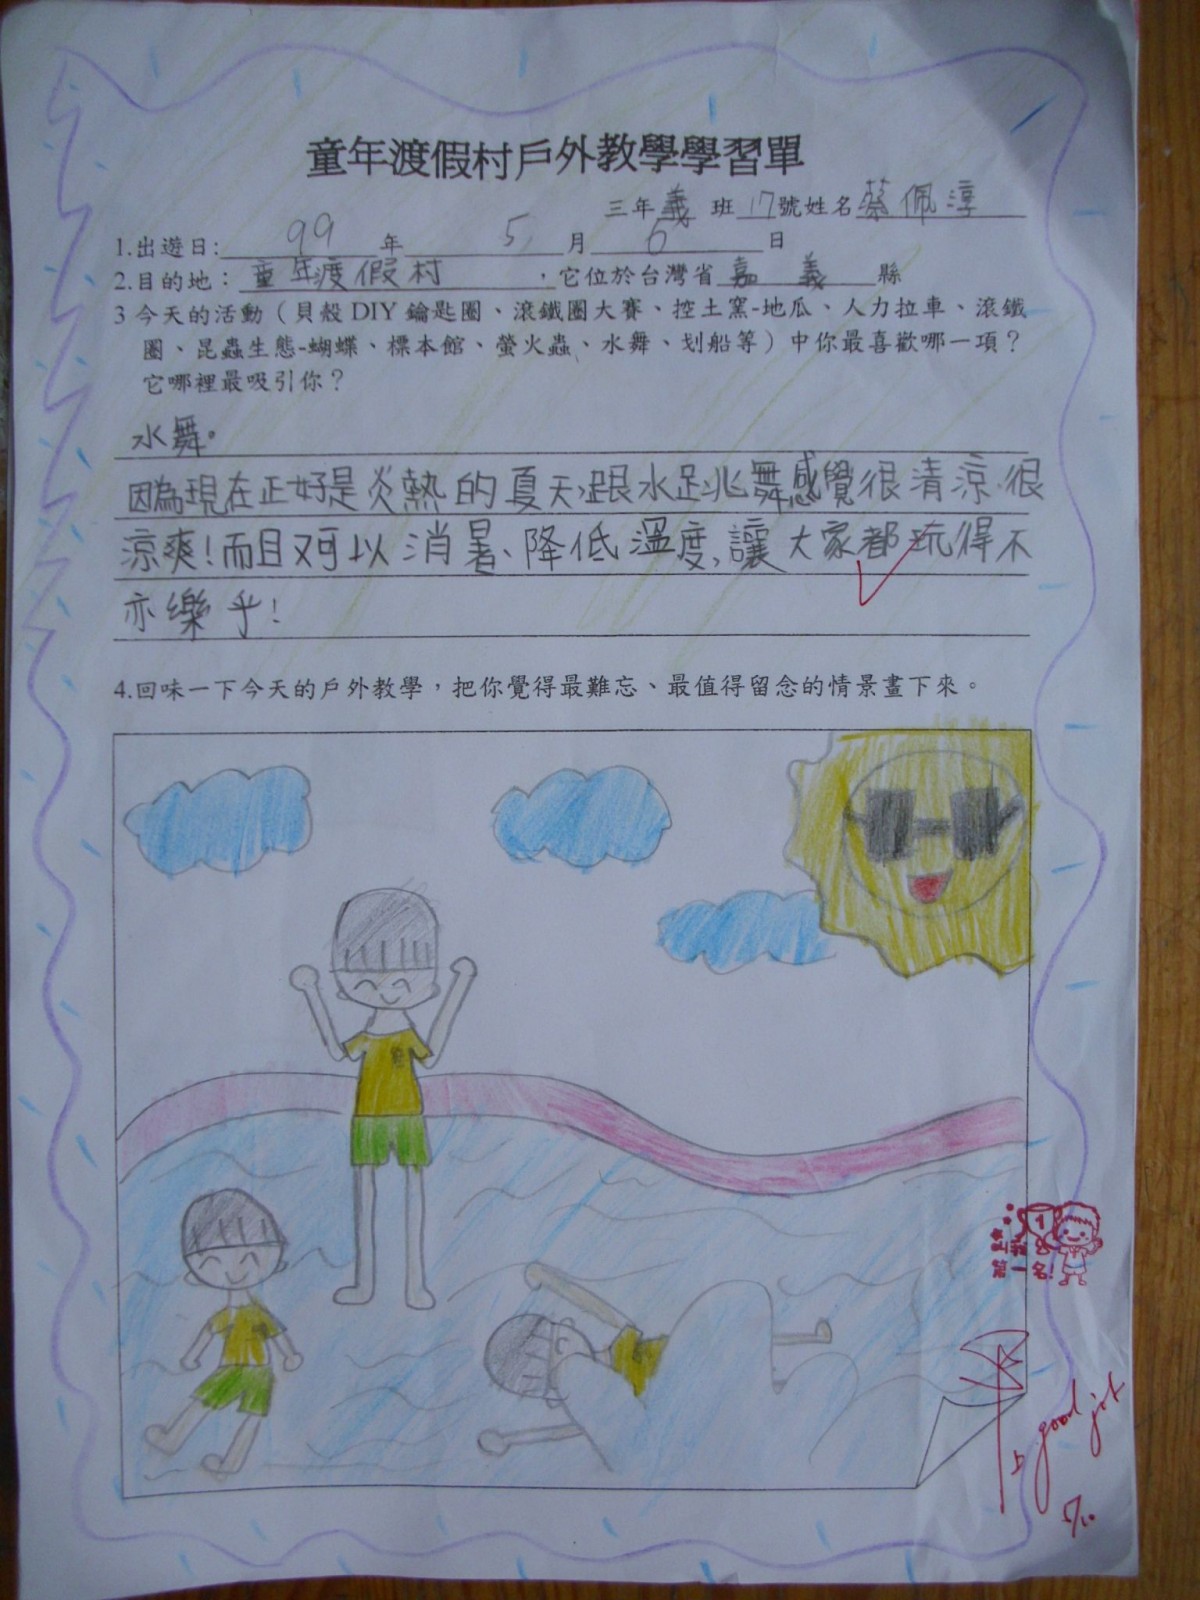 童年渡假村戶外教學學習單
三年義班17號姓名蔡佩淳
1.出遊日:99年5月6日
2.目的地：童年渡假村，它位於台灣省嘉義縣
3 今天的活動（貝殼DIY鑰匙圈、滾鐵圈大賽、控土窯-地瓜、人力拉車、滾鐵
圈、昆蟲生態-蝴蝶、標本館、螢火蟲、水舞、划船等）中你最喜歡哪一項？
它哪裡最吸引你？
水舞。
因為現在正好是炎熱的夏天,跟水跳舞感覺很清涼.很
涼爽!而且又可以消暑、降低溫度,讓大家都玩得不
亦樂乎!
4.回味一下今天的戶外教學，把你覺得最難忘、最值得留念的情景畫下來。
1
第一名!
good job
5/10